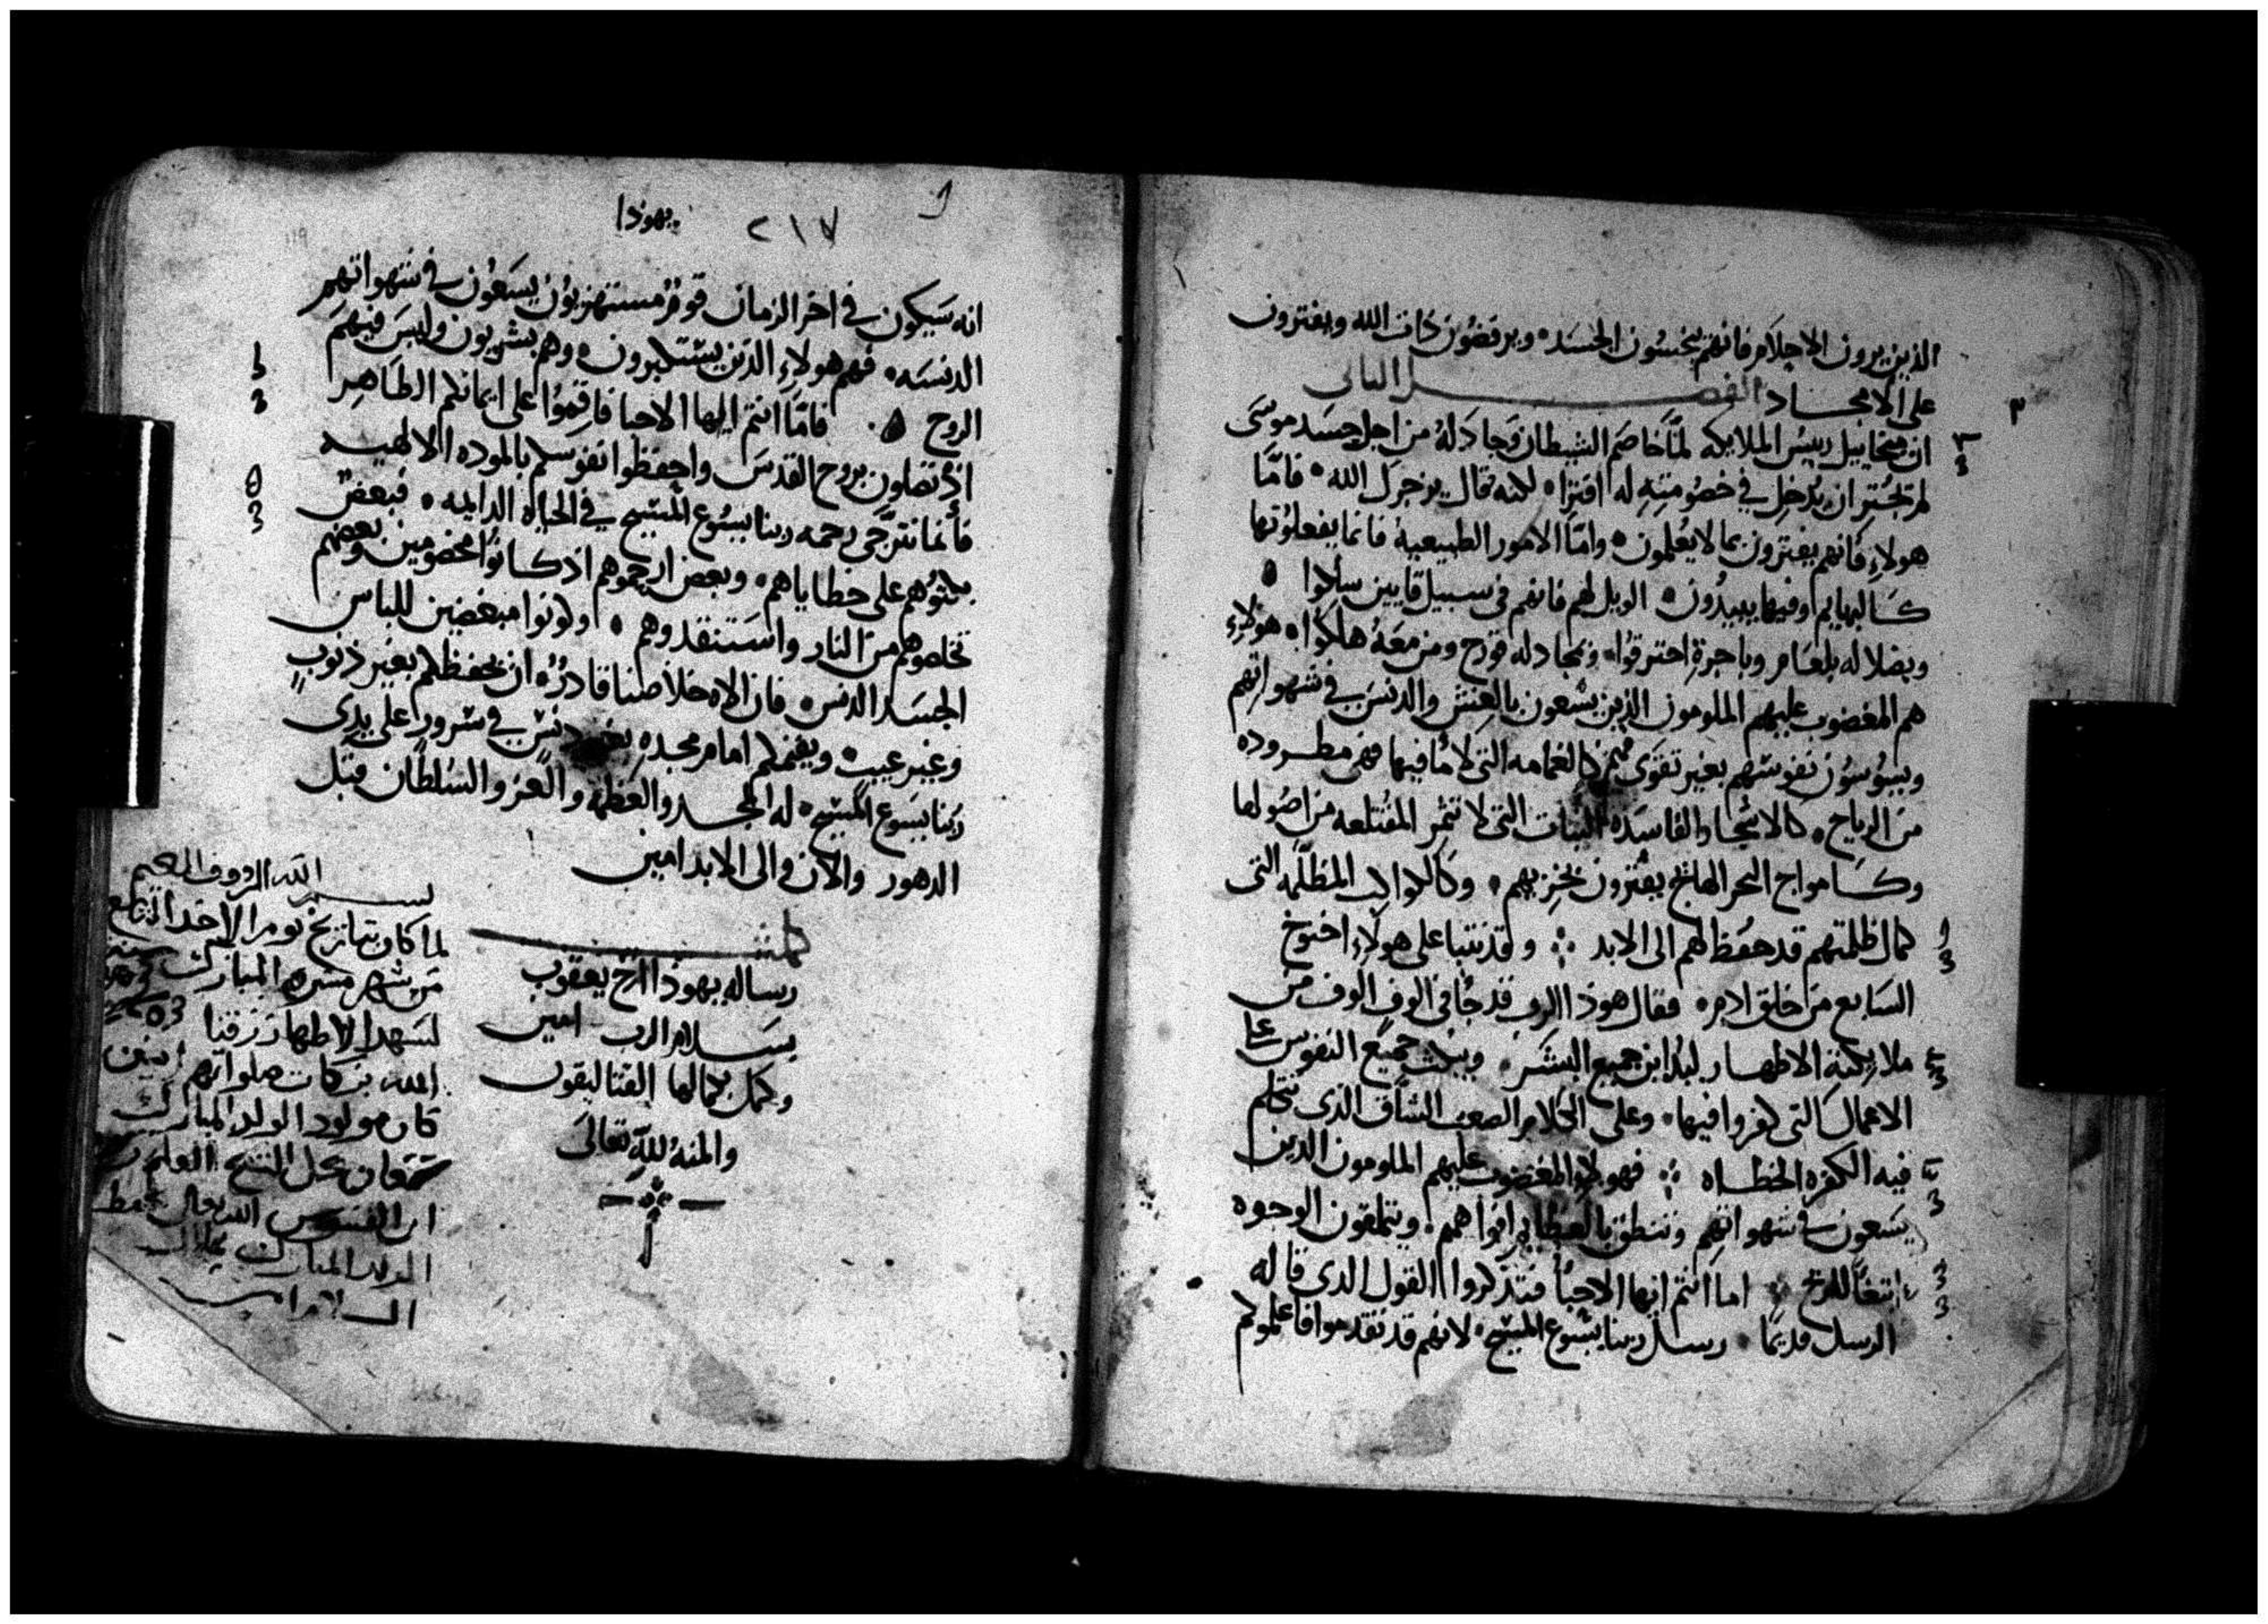 الذين يرون الاحلام فانهم ينجسون الجسد ويرفضون ذات الله ويفترون
على الامجاد الفصل الثالث
ان ميخاييل رييس الملايكه لما خاصم الشيطان وجادله من اجل جسد موسى
لم تجتر ان يدخل في خصومته له افترا لكنه قال يزجرك الله فاما
هولاء فانهم يفترون بما لا يعلمون واما الامور الطبيعيه فانما يفعلونها
كالبهايم وفيها يبيدون الويل لهم فانهم في سبيل قايين سلكوا
وبضلاله بلعام وباجرة احترقوا وبمجادله قورح ومن معه هلكوا هولاء
هم المغضوب عليهم الملومون الذين يسعون بالغش والدنس في شهواتهم
ويسوسون نفوسهم بغير تقوى فهم كالغمامه التي لا ما فيها فهي مطروده
من الرياح كالاشجار الفاسده النبات التي لا تثمر المقتلعه من اصولها
وكامواج البحر الهايج يفترون بخزيهم وكالكواكب المظلمه التي
كمال ظلمتهم قد حفظ لهم الى الابد ولقد تنبا على هولاء اخنوخ
السابع من خلق ادم فقال هوذا الرب قد جا في الوف الوف من
ملايكته الاطهار ليدابن جميع البشر ويبكت جميع النفوس على
الاعمال التي كفروا فيها وعلى الكلام الصعب الشاق الذي تكلم
فيه الكفره الخطاه فهولاء المغضوب عليهم الملومون الذين
يسعون في شهواتهم وتنطق بالعظايم افواههم ويتملقون الوجوه
ابتغا للربح اما انتم ايها الاحبا فتذكروا القول الذي قاله
الرسل قديما رسل ربنا يسوع المسيح لانهم قد تقدموا فاعلموكم
يهوذا ٢١٧
انه سيكون في اخر الزمان قوم مستهزيون يسعون في شهواتهم
الدنسه فهم هولاء الذين يستكبرون وهم بشريون وليس فيهم
الروح فاما انتم ايها الاحبا فاقيموا على ايمانكم الطاهر
اذ تصلون بروح القدس واحفظوا نفوسكم بالموده الالهيه
فانما نترجى رحمه ربنا يسوع المسيح في الحياه الدايمه فبعض
بكتوهم على خطاياهم وبعض ارحموهم اذ كانوا مخصومين وبعضهم
تخلصوهم من النار واستنقدوهم وكونوا مبغضين للباس
الجسد الدنس فان الاه خلاصنا قادر ان يحفظكم بغير ذنوب
وغير عيب ويقيمكم امام مجده بغير دنس في سرور على يدى
ربنا يسوع المسيح له المجد والعظمه والعز والسلطان قبل
الدهور والان والى الابد امين
كملت
رساله يهوذا اخ يعقوب
بسلام الرب امين
وكمل بكمالها القتاليقون
والمنه لله تعالى
بسم الله الرووف الرحيم
لما كان بتاريخ يوم الاحد التاسع
من شهر مسرى المبارك سنه
لشهدا الاطهار رزقنا
الله بركات صلواتهم امين
كان مولود الولد المبارك
ابن القسيس
الولد المبارك
السلام امين